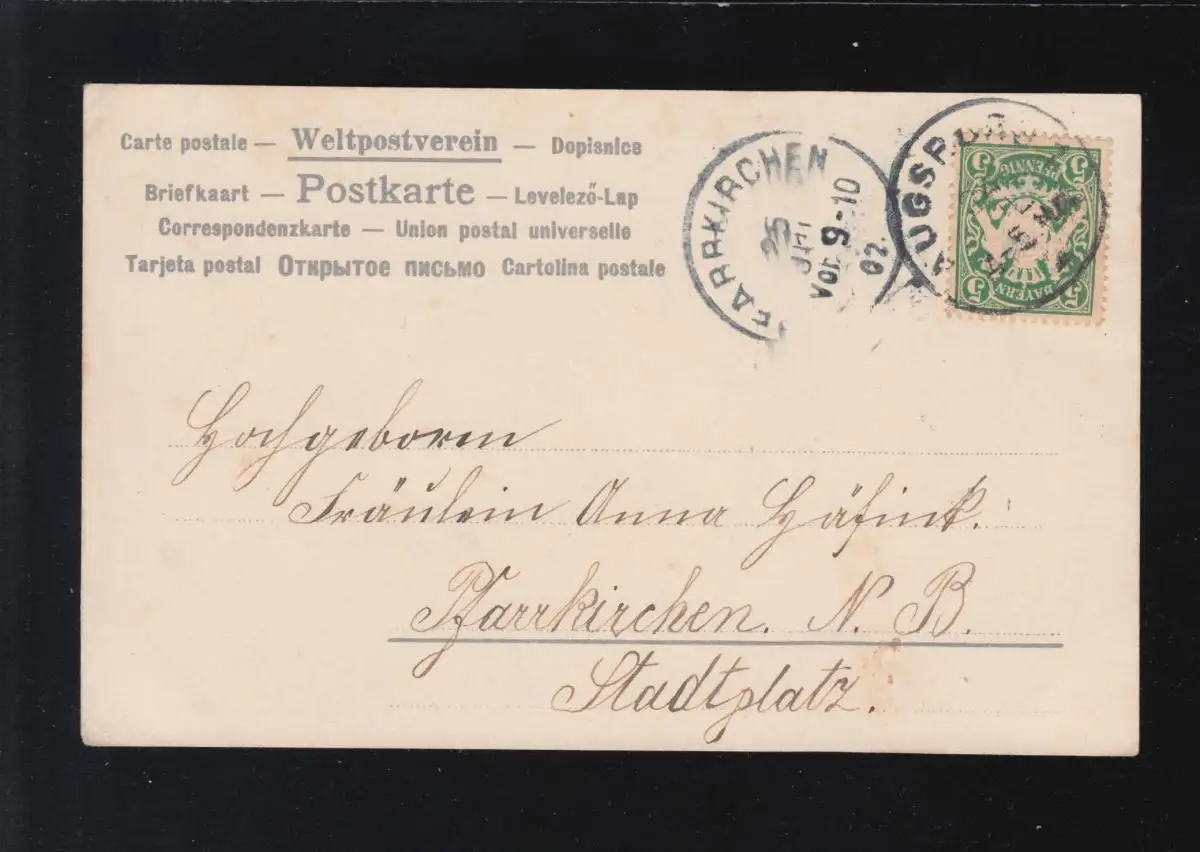 Carte postale — Weltpostverein — Dopisnice
Briefkaart — Postkarte — Levelező-Lap
Correspondenzkarte — Union postal universelle
Tarjeta postal Открытое письмо Cartolina postale
PFARRKIRCHEN
25
VOR. 9-10
02.
5 PFENNIG 5
5 BAYERN 5
Hochgeboren
Fräulein Anna Häfink.
Pfarrkirchen. N. B.
Stadtplatz.